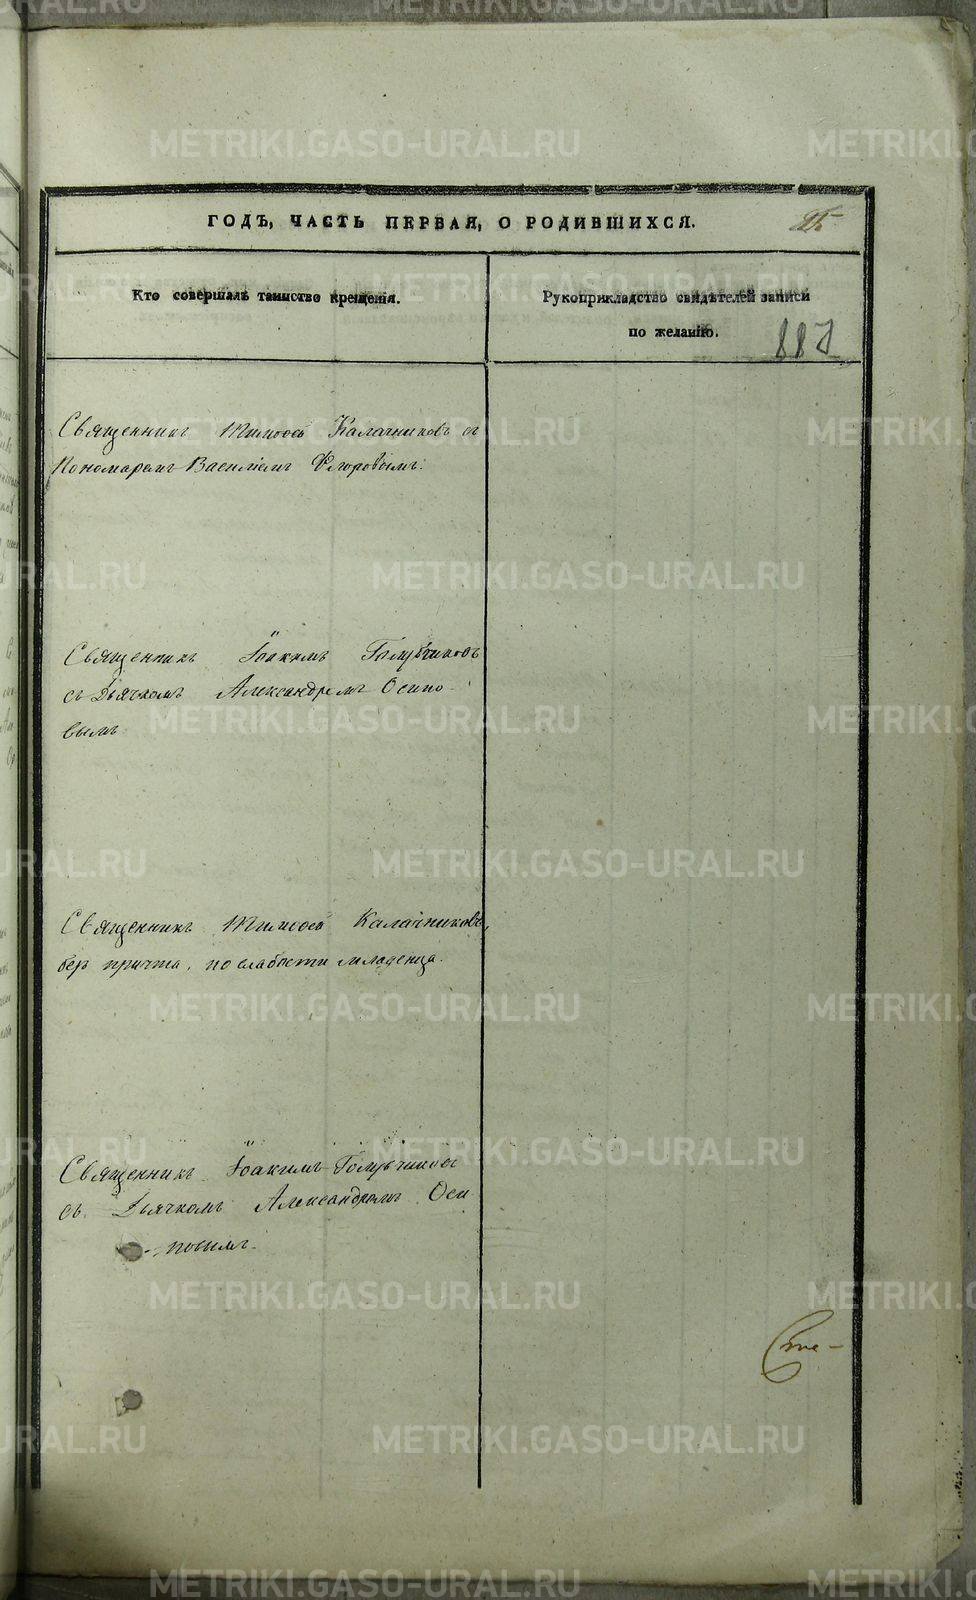 ГОДЪ, ЧАСТЬ ПЕРВАЯ, О РОДИВШИХСЯ.
Кто совершалъ таинство крещенія.
Рукоприкладство свидѣтелей записи
по желанію.
887
Священникъ Тимоѳей Калачниковъ съ
Пономаремъ Василіемъ Флоровымъ.
Священникъ Іоакимъ Голубчиковъ
съ Дьячкомъ Александромъ Осипо-
вымъ
Священникъ Тимоѳей Калачниковъ,
безъ причта, по слабости младенца.
Священникъ Іоакимъ Голубчиковъ
съ Дьячкомъ Александромъ Оси
повымъ.
METRIKI.GASO-URAL.RU